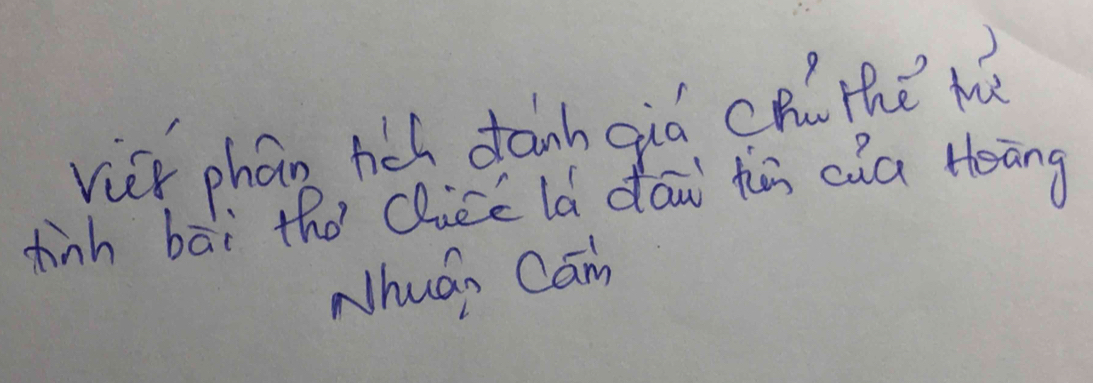 Viết phân tích đánh giá chủ thể trữ
tình bài thơ chiếc lá đầu tiên của Hoàng
Nhuận Cầm